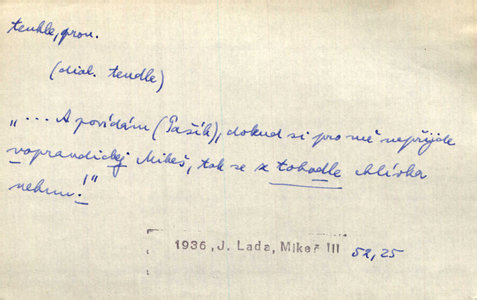 tenhle, pron.
(dial. tendle)
"... A povídám (Pašík), dokud si pro mě nepřijde
voprandickej Mikeš, tak se z tohodle chlívka
nehnu!"
1936, J. Lada, Mikeš III 52,25